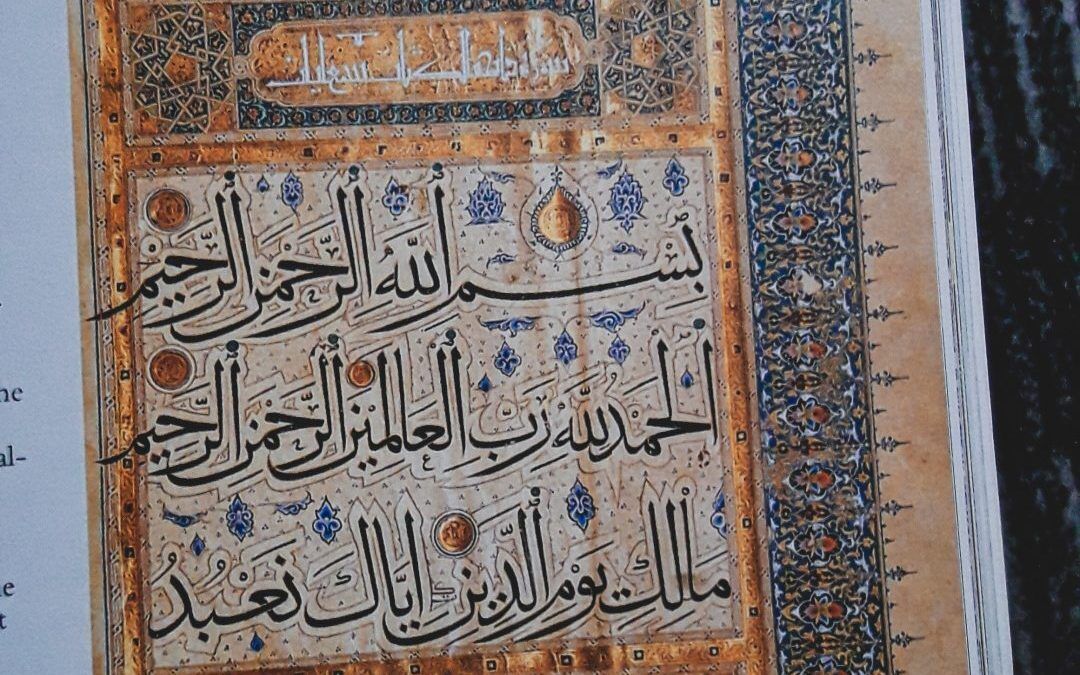 سورة فاتحة الكتاب سبع ايات
بِسْمِ اللَّهِ الرَّحْمَنِ الرَّحِيمِ
الْحَمْدُ لِلَّهِ رَبِّ الْعَالَمِينَ الرَّحْمَنِ الرَّحِيمِ
مَالِكِ يَوْمِ الدِّينِ اِيَّاكَ نَعْبُدُ